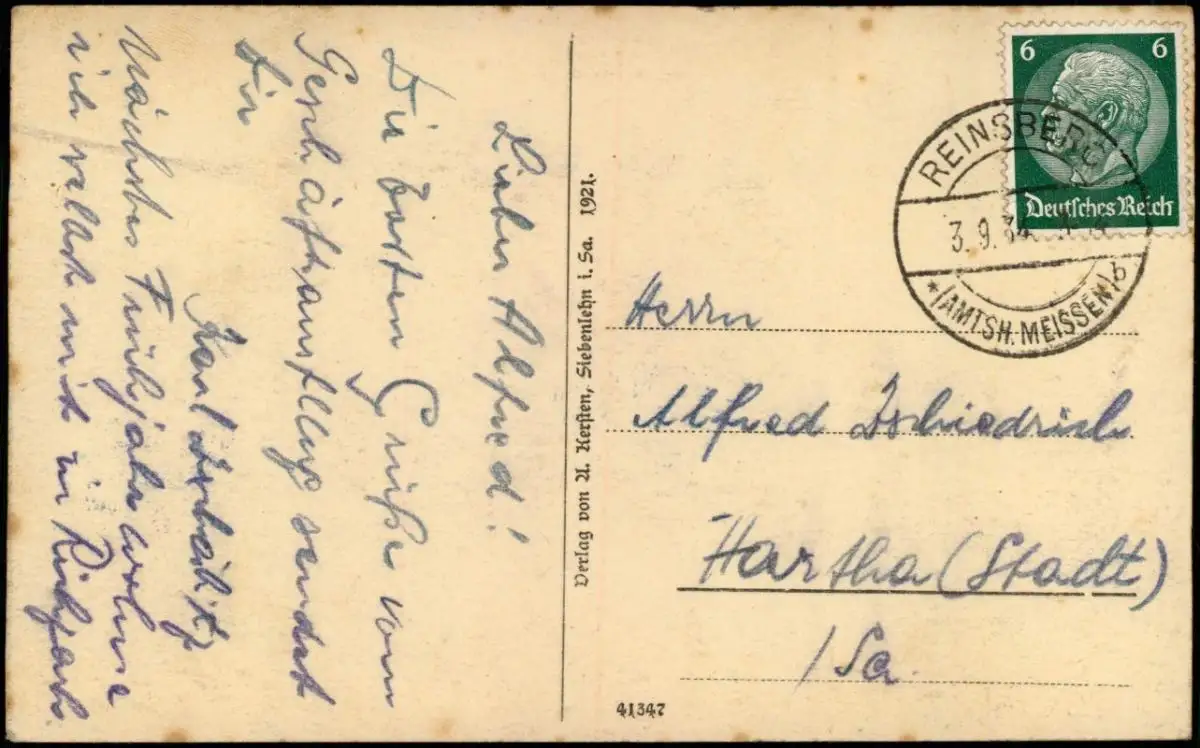 Lieber Alfred!
Die besten Grüße vom
Geschäftsausflug sendet
Dir
Karl
Nächstes Frühjahr wohne
ich selbst mit in
Verlag von A. Kersten, Siebenlehn i. Sa. 1921.
6 6
Deutsches Reich
REINSBERG
3.9.34
*(AMTSH. MEISSEN) b
Herrn
Alfred Zschiedrich
Hartha (Stadt)
/Sa.
41347